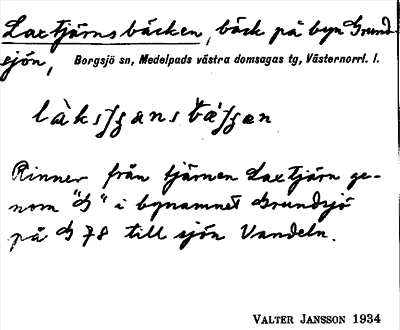 Laxtjärnsbäcken, bäck på byn Grund-
sjön, Borgsjö sn, Medelpads västra domsagas tg, Västernorrl. l.
Rinner från tjärnen Laxtjärn ge-
nom "G" i bynamnet Grundsjö
på G 78 till sjön Vandeln.
VALTER JANSSON 1934